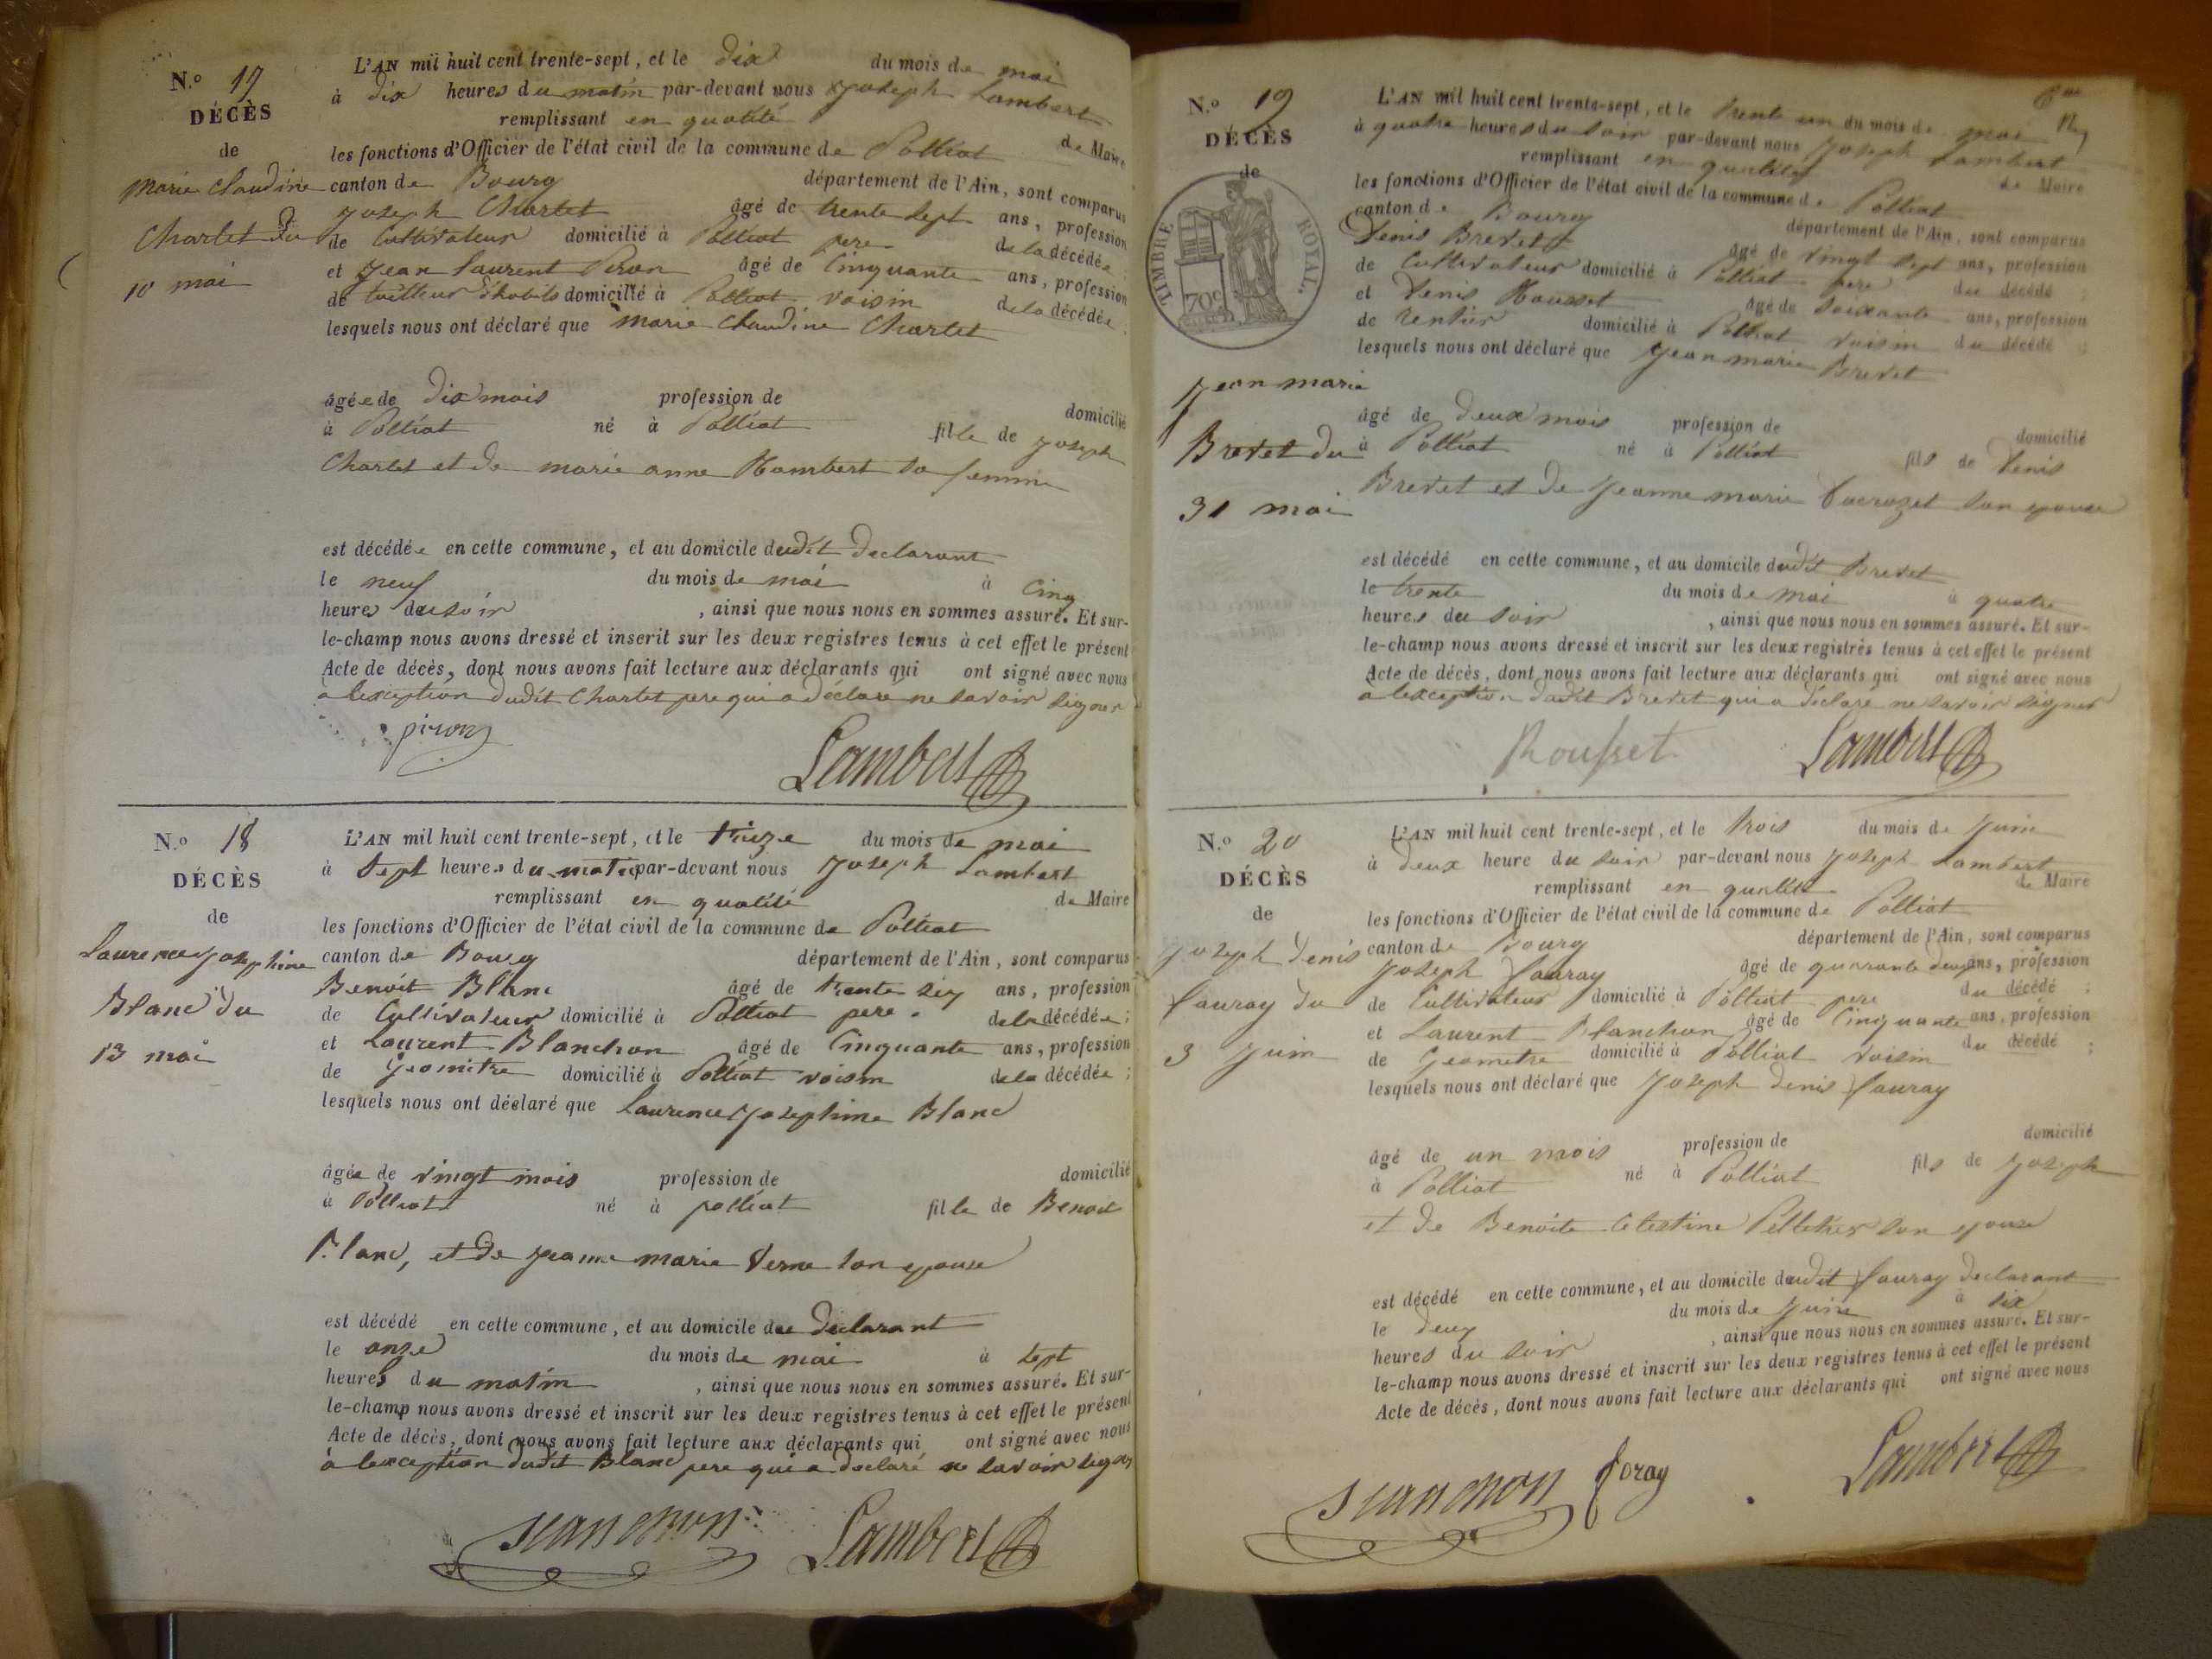 N.º 17
DÉCÈS
de
marie Claudine
Charlet du
10 mai
L'AN mil huit cent trente-sept, et le dix du mois de mai
à dix heures du matin par-devant nous joseph Lambert
remplissant en qualité de Maire
les fonctions d'Officier de l'état civil de la commune de Polliat
canton de Bourg département de l'Ain, sont comparus
joseph Charlet âgé de trente sept ans, profession
de Cultivateur domicilié à Polliat pere de la décédée;
et jean Laurent Piron âgé de Cinquante ans, profession
de tailleur d'habits domicilié à Polliat voisin de la décédée
lesquels nous ont déclaré que marie Claudine Charlet
âgée de dix mois profession de domicilié
à Polliat né à Polliat fille de joseph
Charlet et de marie anne Hambert sa femme
est décédée en cette commune, et au domicile dudit declarant
le neuf du mois de mai à Cinq
heures du soir, ainsi que nous nous en sommes assuré. Et sur-
le-champ nous avons dressé et inscrit sur les deux registres tenus à cet effet le présent
Acte de décès, dont nous avons fait lecture aux déclarants qui ont signé avec nous
a lexception dudit Charlet pere qui a déclaré ne savoir signer
piron
Lambert
N.º 18
DÉCÈS
de
Laurence josephine
Blanc du
13 mai
L'AN mil huit cent trente-sept, et le treize du mois de mai
à sept heures du matin par-devant nous joseph Lambert
remplissant en qualité de Maire
les fonctions d'Officier de l'état civil de la commune de Polliat
canton de Bourg département de l'Ain, sont comparus
Benoit Blanc âgé de trente six ans, profession
de Cultivateur domicilié à Polliat pere de la décédée;
et Laurent Blanchon âgé de Cinquante ans, profession
de Geomètre domicilié à Polliat voisin de la décédée;
lesquels nous ont déclaré que Laurence josephine Blanc
âgée de vingt mois profession de domicilié
à Polliat né à polliat fille de Benoit
Blanc, et de jeanne marie Verne son epouse
est décédé en cette commune, et au domicile du declarant
le onze du mois de mai à sept
heures du matin, ainsi que nous nous en sommes assuré. Et sur-
le-champ nous avons dressé et inscrit sur les deux registres tenus à cet effet le présent
Acte de décès, dont nous avons fait lecture aux déclarants qui ont signé avec nous
à lexception dudit Blanc pere qui a declaré ne savoir signer
Blanchon Lambert
6me
N.º 19
DÉCÈS
de
TIMBRE ROYAL.
70c
jean marie
Brevet du
31 mai
L'AN mil huit cent trente-sept, et le trente un du mois de mai
à quatre heures du soir par-devant nous joseph Lambert
remplissant en qualité de Maire
les fonctions d'Officier de l'état civil de la commune de Polliat
canton de Bourg département de l'Ain, sont comparus
Denis Brevet âgé de vingt sept ans, profession
de Cultivateur domicilié à Polliat pere du décédé;
et Denis Rousset âgé de soixante ans, profession
de rentier domicilié à Polliat voisin du décédé;
lesquels nous ont déclaré que jean marie Brevet
âgé de deux mois profession de domicilié
à Polliat né à Polliat fils de Denis
Brevet et de jeanne marie son epouse
est décédé en cette commune, et au domicile dudit Brevet
le trente du mois de mai à quatre
heures du soir, ainsi que nous nous en sommes assuré. Et sur-
le-champ nous avons dressé et inscrit sur les deux registrès tenus à cet effet le présent
Acte de décès, dont nous avons fait lecture aux déclarants qui ont signé avec nous
a lexception dudit Brevet qui a déclaré ne savoir signer
Rousset Lambert
N.º 20
DÉCÈS
de
joseph Denis
fauray du
3 juin
L'AN mil huit cent trente-sept, et le trois du mois de juin
à deux heure du soir par-devant nous joseph Lambert
remplissant en qualité de Maire
les fonctions d'Officier de l'état civil de la commune de Polliat
canton de Bourg département de l'Ain, sont comparus
joseph fauray âgé de quarante deux ans, profession
de Cultivateur domicilié à Polliat pere du décédé;
et Laurent Blanchon âgé de Cinquante ans, profession
de Geometre domicilié à Polliat voisin du décédé;
lesquels nous ont déclaré que joseph Denis fauray
âgé de un mois profession de domicilié
à Polliat né à Polliat fils de joseph
et de Benoite Celestine Pelletier son epouse
est décédé en cette commune, et au domicile dudit fauray declarant
le deux du mois de juin à six
heures du soir, ainsi que nous nous en sommes assuré. Et sur-
le-champ nous avons dressé et inscrit sur les deux registres tenus à cet effet le présent
Acte de décès, dont nous avons fait lecture aux déclarants qui ont signé avec nous
Blanchon foray Lambert